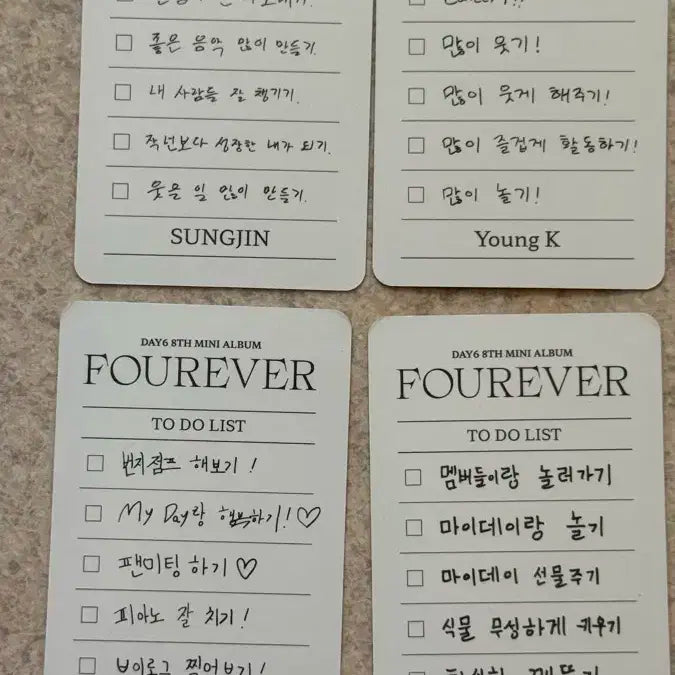 좋은 음악 많이 만들기.
내 사람들 잘 챙기기.
작년보다 성장한 내가 되기.
웃을 일 많이 만들기.
SUNGJIN
많이 웃기!
많이 웃게 해주기!
많이 즐겁게 활동하기!
많이 놀기!
Young K
DAY6 8TH MINI ALBUM
FOUREVER
TO DO LIST
번지점프 해보기!
My Day랑 행복하기!♡
팬미팅 하기♡
피아노 잘 치기!
브이로그 찍어보기!
DAY6 8TH MINI ALBUM
FOUREVER
TO DO LIST
멤버들이랑 놀러가기
마이데이랑 놀기
마이데이 선물주기
식물 무성하게 키우기